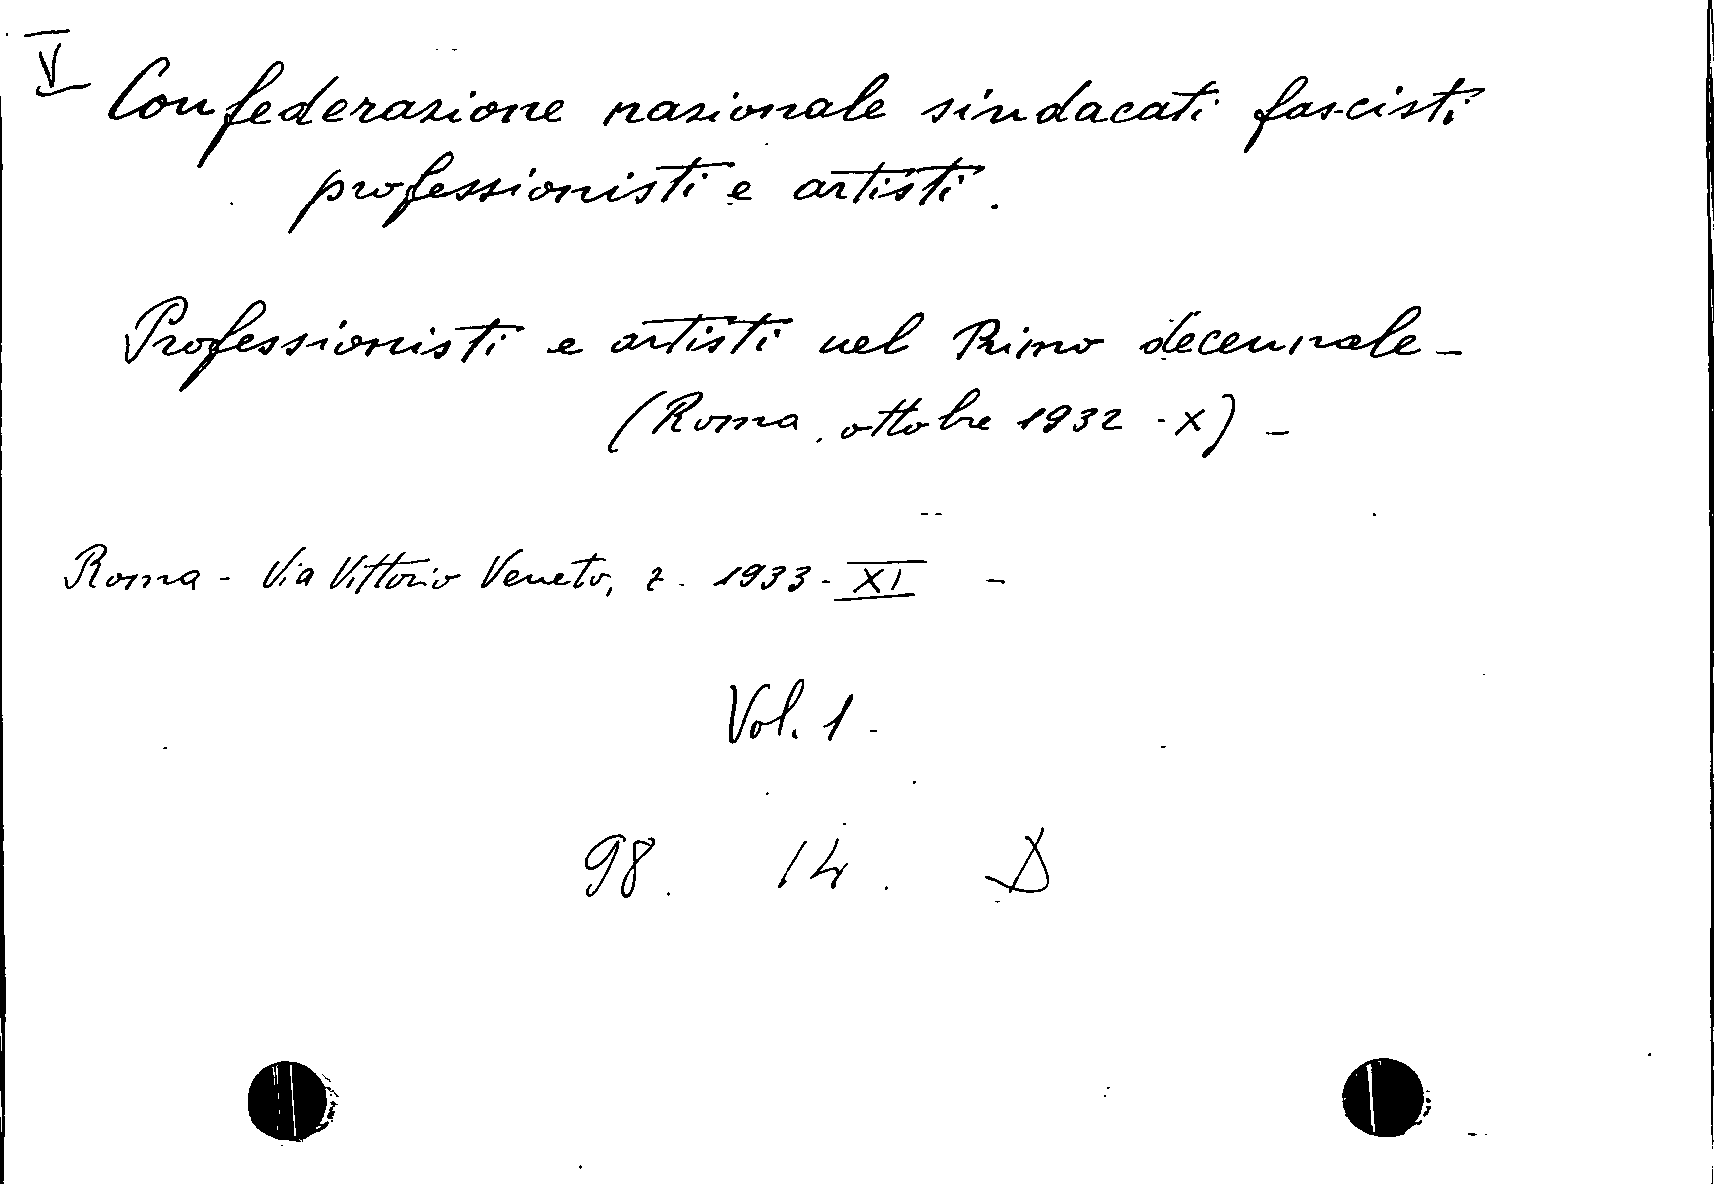 V Confederazione nazionale sindacati fascisti
professionisti e artisti.
Professionisti e artisti nel Primo decennale -
(Roma, ottobre 1932 - X) -
Roma - Via Vittorio Veneto, 7. 1933 - XI -
Vol. 1 -
98. 14. D